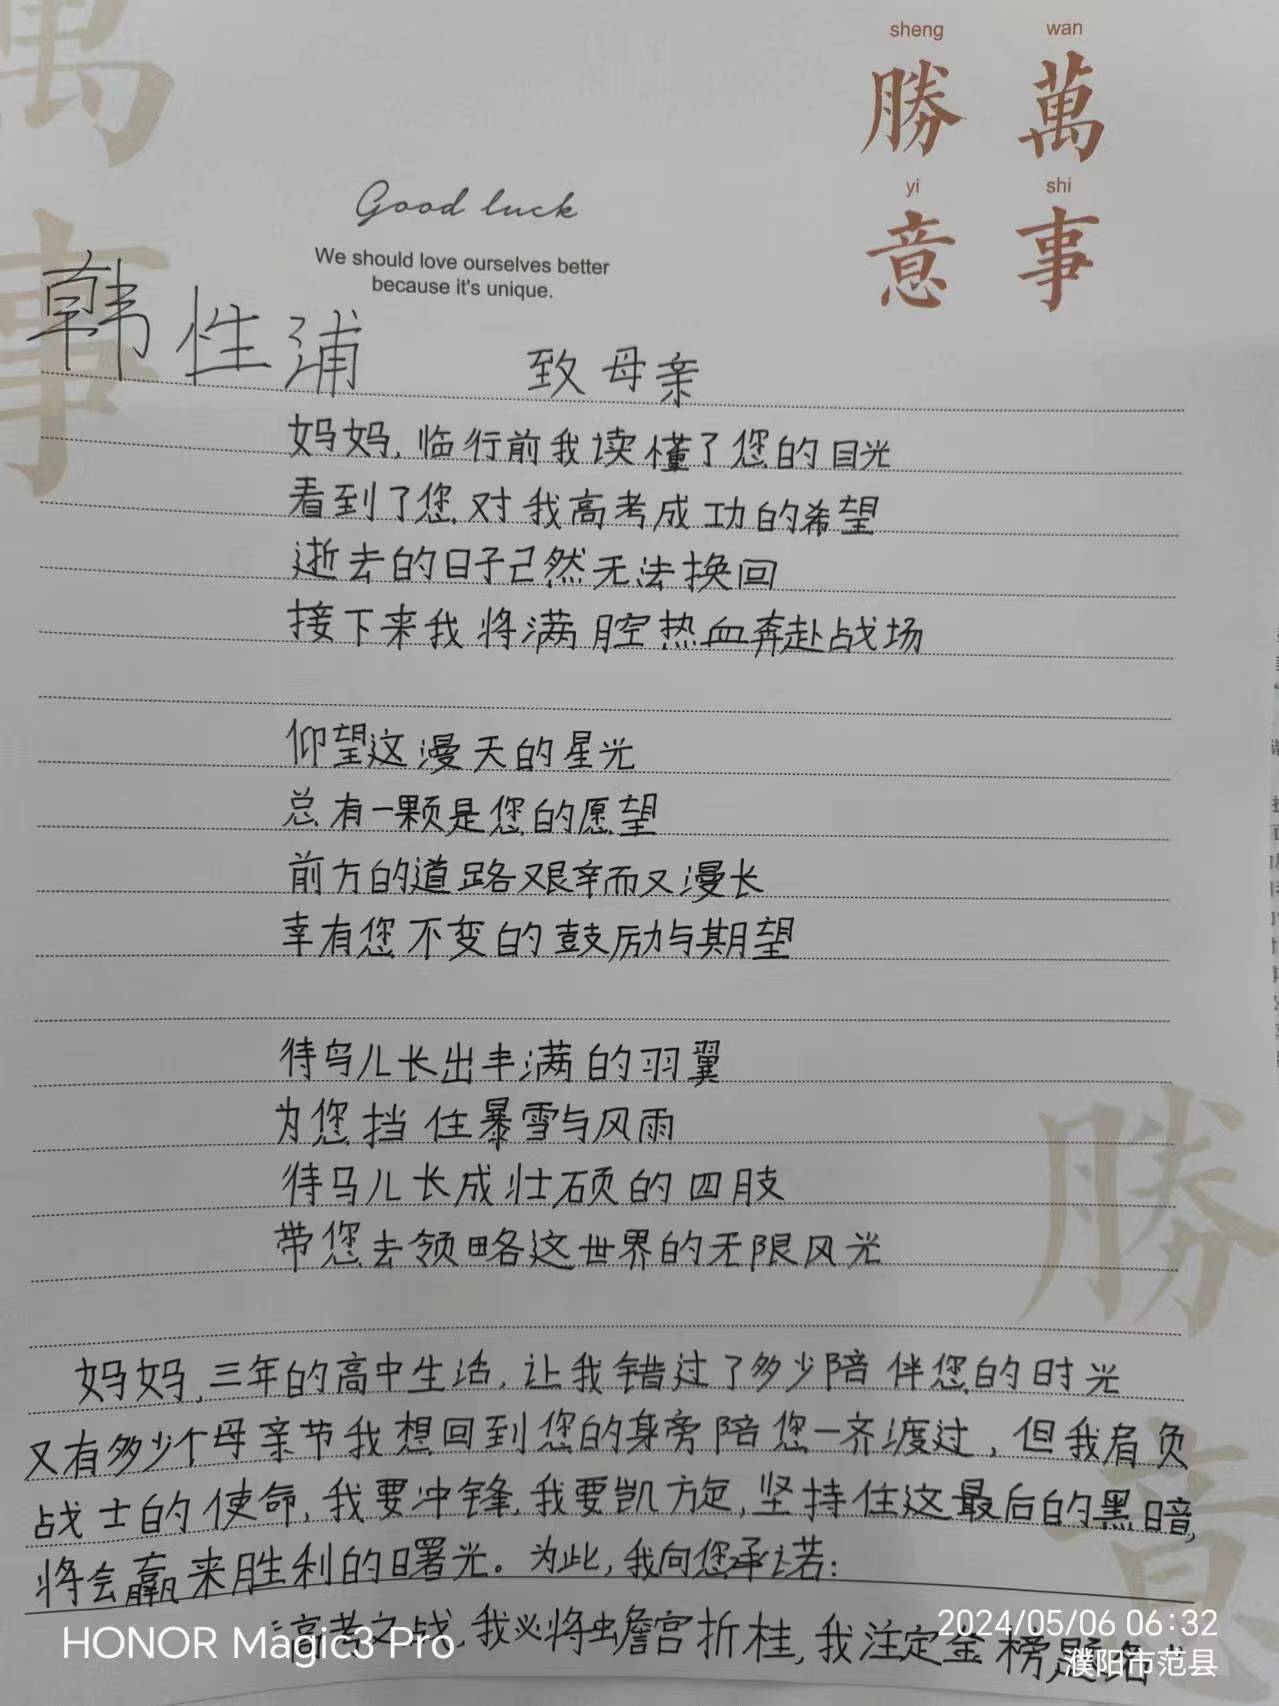 sheng wan
勝 萬
yi shi
意 事
萬
事
Good luck
We should love ourselves better
because it's unique.
韩性浦 致母亲
妈妈,临行前我读懂了您的目光
看到了您对我高考成功的希望
逝去的日子已然无法换回
接下来我将满腔热血奔赴战场
仰望这漫天的星光
总有一颗是您的愿望
前方的道路艰辛而又漫长
幸有您不变的鼓励与期望
待鸟儿长出丰满的羽翼
为您挡住暴雪与风雨
待马儿长成壮硕的四肢
带您去领略这世界的无限风光
妈妈,三年的高中生活,让我错过了多少陪伴您的时光
又有多少个母亲节我想回到您的身旁陪您一齐渡过,但我肩负
战士的使命,我要冲锋,我要凯旋,坚持住这最后的黑暗,
将会赢来胜利的曙光。为此,我向您承诺:
“高考之战,我必将蟾宫折桂,我注定金榜题名”
勝
意
HONOR Magic3 Pro
2024/05/06 06:32
濮阳市范县